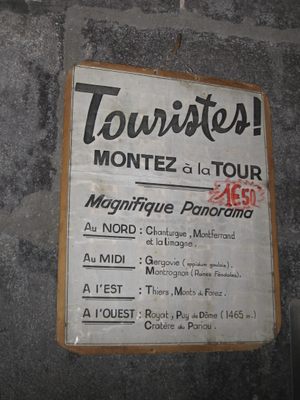 Touristes!
MONTEZ à la TOUR
1€50
Magnifique Panorama
Au NORD : Chanturgue, Montferrand
et la Limagne.
Au MIDI : Gergovie (oppidum gaulois).
Montrognon (Ruines Féodales).
A l'EST : Thiers, Monts du Forez.
A l'OUEST : Royat, Puy de Dôme (1465 m.)
Cratère du Pariou.